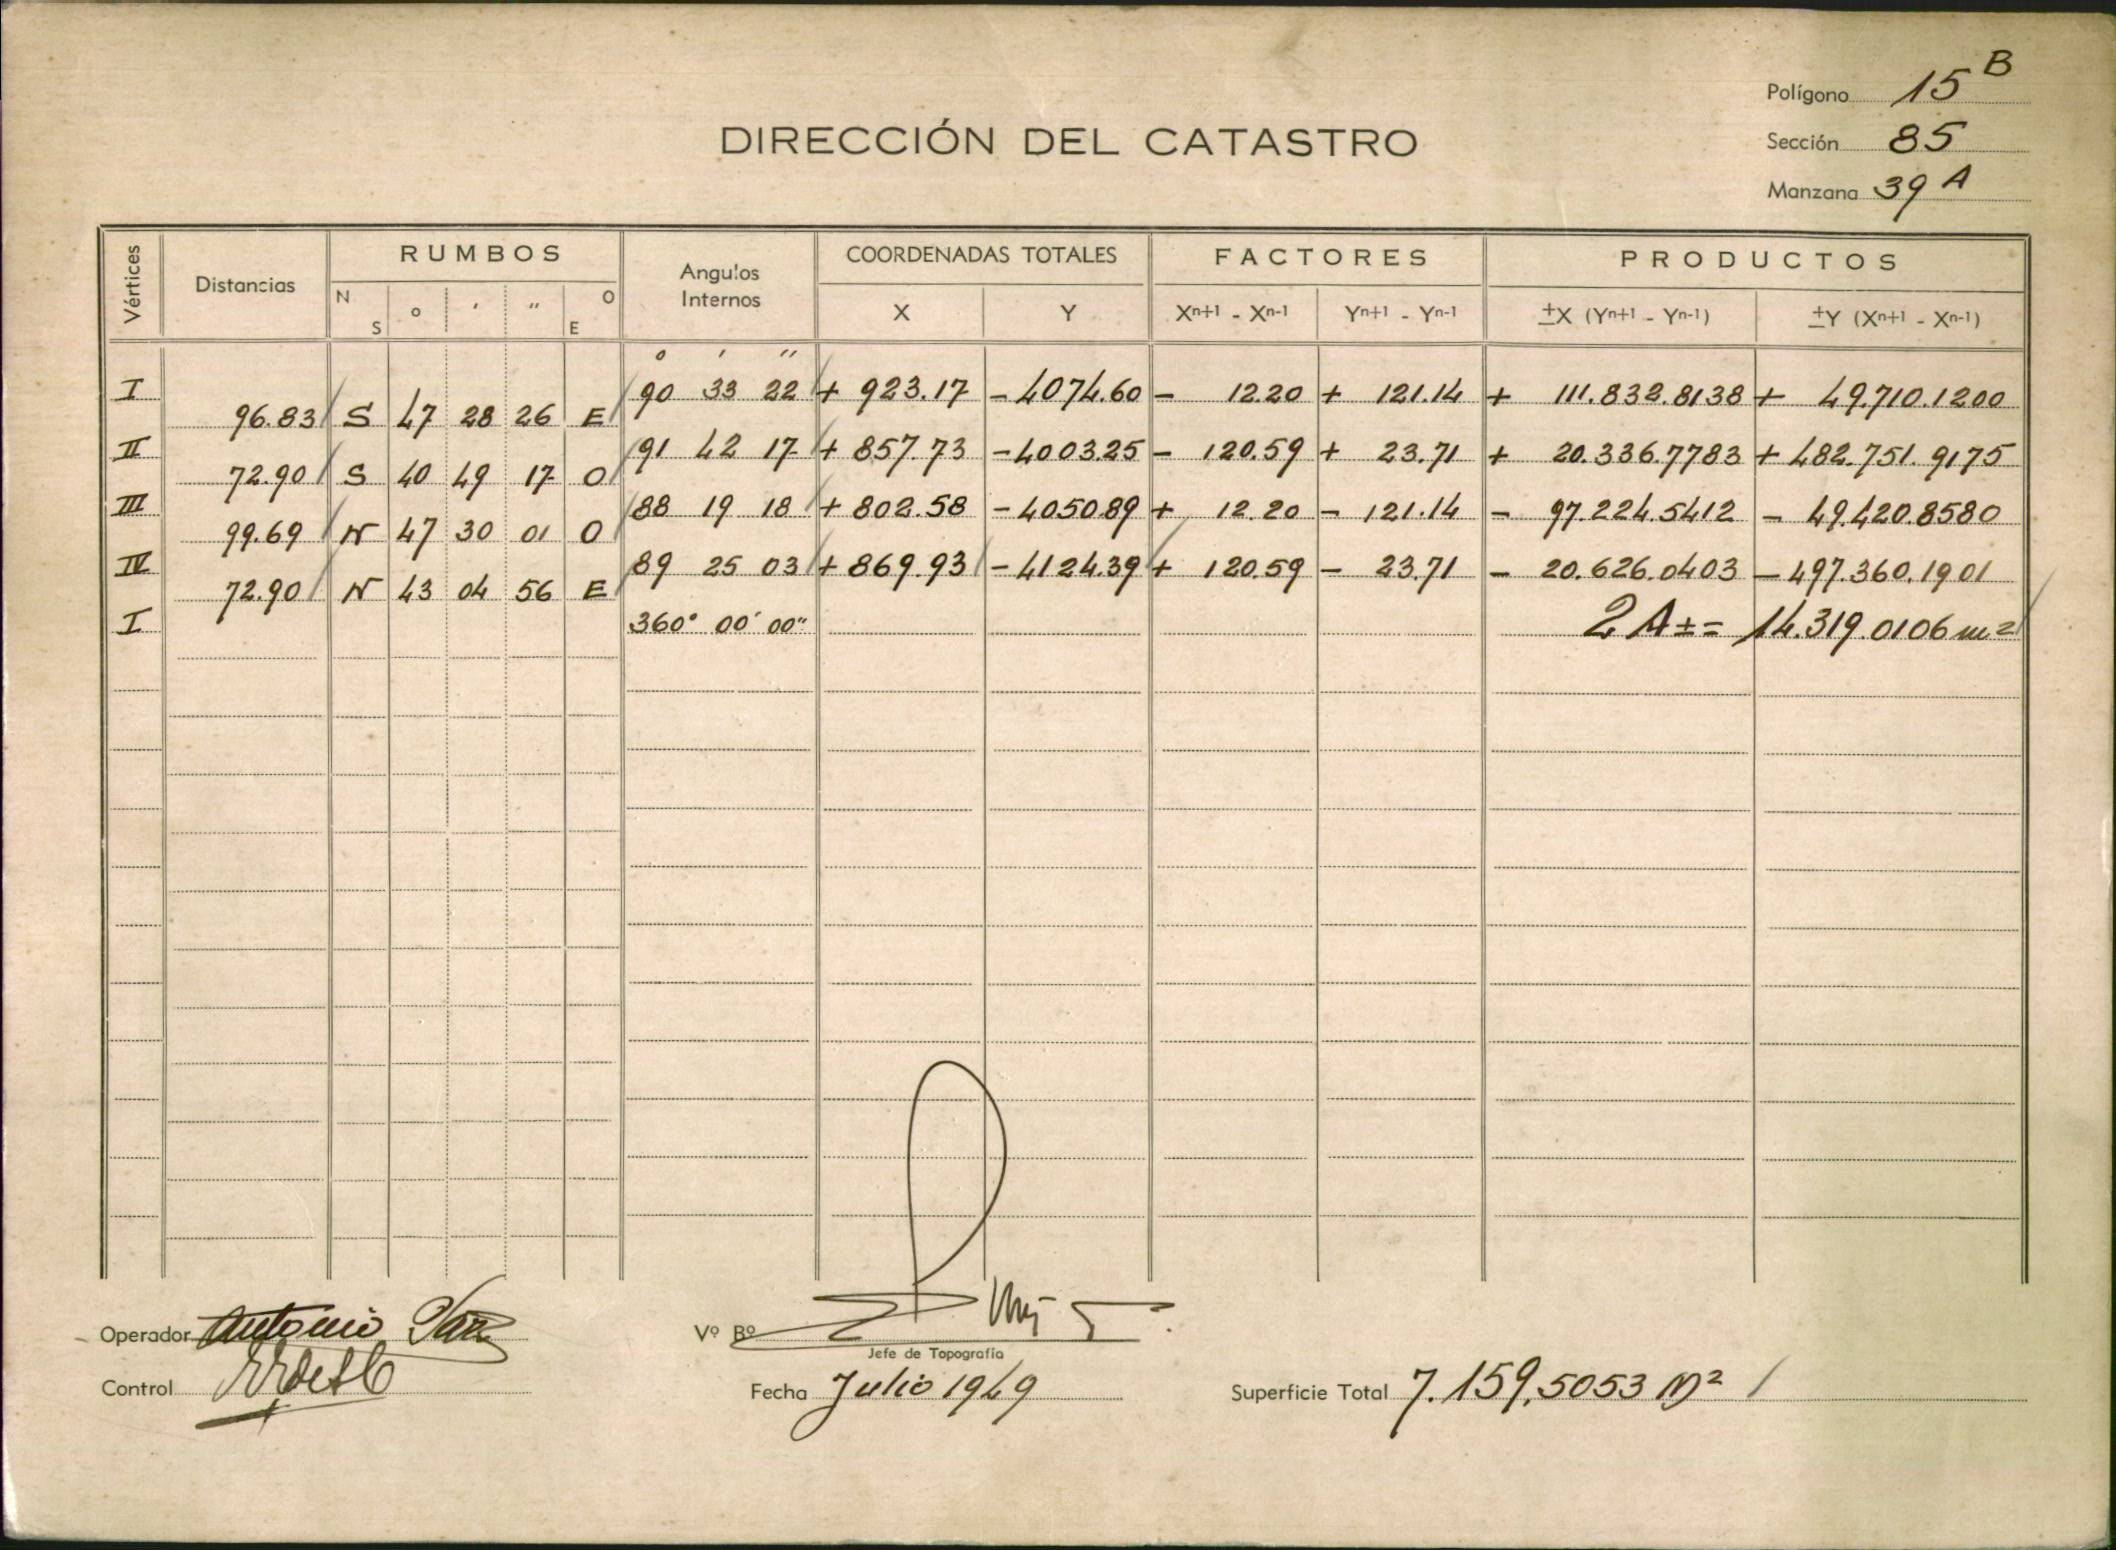 Polígono 15 B
DIRECCIÓN DEL CATASTRO
Sección 85
Manzana 39 A
Vértices Distancias RUMBOS Angulos Internos COORDENADAS TOTALES FACTORES PRODUCTOS
N S ° ' " O E X Y Xn+1 - Xn-1 Yn+1 - Yn-1 ±X (Yn+1 - Yn-1) ±Y (Xn+1 - Xn-1)
° ' "
I 90 33 22 + 923.17 - 4074.60 - 12.20 + 121.14 + 111.832.8138 + 49.710.1200
96.83 S 47 28 26 E
II 91 42 17 + 857.73 - 4003.25 - 120.59 + 23.71 + 20.336.7783 + 482.751.9175
72.90 S 40 49 17 O
III 88 19 18 + 802.58 - 4050.89 + 12.20 - 121.14 - 97.224.5412 - 49.420.8580
99.69 N 47 30 01 O
IV 89 25 03 + 869.93 - 4124.39 + 120.59 - 23.71 - 20.626.0403 - 497.360.1901
72.90 N 43 04 56 E
I 360° 00' 00" 2 A ± = 14.319.0106 m2
Operador Antonio
Vº Bº
Jefe de Topografía
Control
Fecha Julio 1949
Superficie Total 7.159,5053 M2